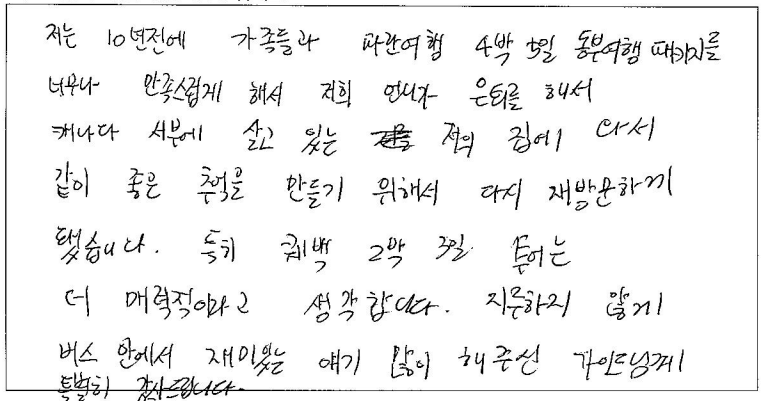 저는 10년전에 가족들과 파란여행 4박 5일 동부여행 패키지를
너무나 만족스럽게 해서 저희 언니가 은퇴를 해서
캐나다 서부에 살고 있는 저의 집에 다시
같이 좋은 추억을 만들기 위해서 다시 재방문하게
됐습니다. 특히 퀘백 2박 3일 투어는
더 매력적이라고 생각합니다. 지루하지 않게
버스 안에서 재미있는 얘기 많이 해주신 가이드님께
특별히 감사드립니다.